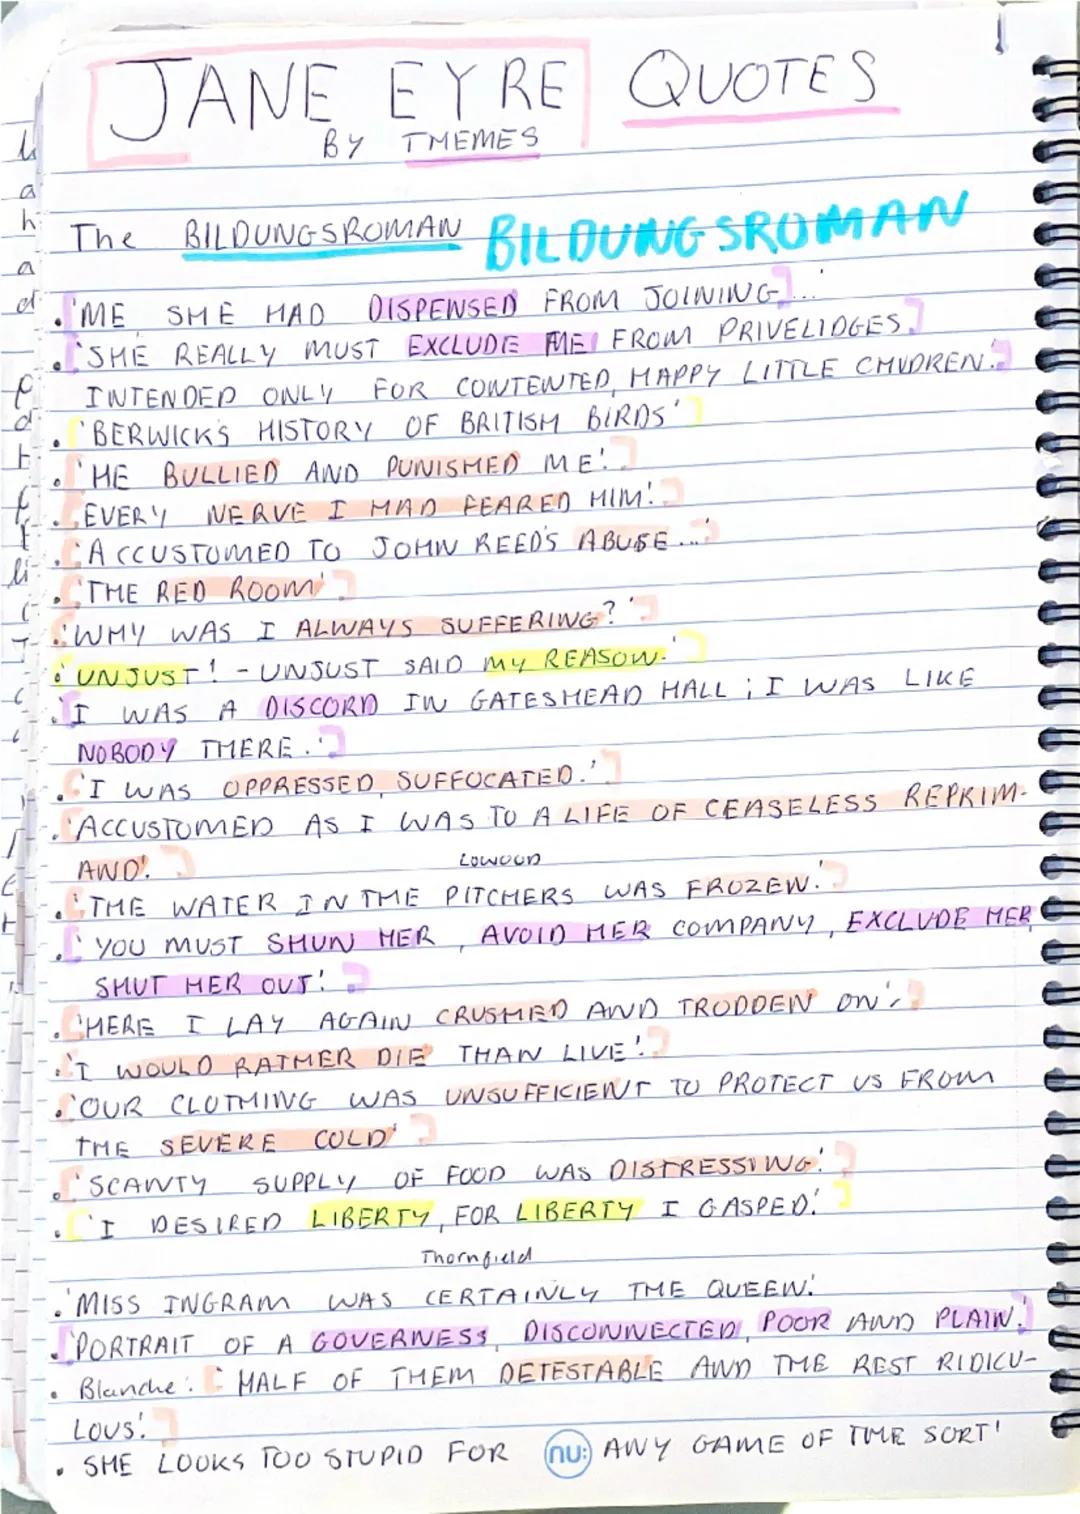 JANE EYRE QUOTES
BY THEMES
The BILDUNGSROMAN BILDUNGSROMAN
• 'ME SHE HAD DISPENSED FROM JOINING'...
• 'SHE REALLY MUST EXCLUDE ME FROM PRIVELIDGES
INTENDED ONLY FOR CONTENTED, HAPPY LITTLE CHILDREN.'
• 'BERWICK'S HISTORY OF BRITISH BIRDS'
• 'HE BULLIED AND PUNISHED ME'.
• 'EVERY NERVE I HAD FEARED HIM'.
• 'ACCUSTOMED TO JOHN REED'S ABUSE...'
• 'THE RED ROOM'
• 'WHY WAS I ALWAYS SUFFERING?'
• 'UNJUST! - UNJUST SAID MY REASON.'
• 'I WAS A DISCORD IN GATESHEAD HALL; I WAS LIKE
NOBODY THERE.'
• 'I WAS OPPRESSED, SUFFOCATED.'
• 'ACCUSTOMED AS I WAS TO A LIFE OF CEASELESS REPRIM-
AND'.
LOWOOD
• 'THE WATER IN THE PITCHERS WAS FROZEN.'
• 'YOU MUST SHUN HER, AVOID HER COMPANY, EXCLUDE HER,
SHUT HER OUT'.
• 'HERE I LAY AGAIN CRUSHED AND TRODDEN ON'.
• 'I WOULD RATHER DIE THAN LIVE'.
• 'OUR CLOTHING WAS UNSUFFICIENT TO PROTECT US FROM
THE SEVERE COLD'
• 'SCANTY SUPPLY OF FOOD WAS DISTRESSING'.
• 'I DESIRED LIBERTY, FOR LIBERTY I GASPED'.
Thornfield
• 'MISS INGRAM WAS CERTAINLY THE QUEEN'.
• 'PORTRAIT OF A GOVERNESS, DISCONNECTED, POOR AND PLAIN.'
• Blanche: 'HALF OF THEM DETESTABLE AND THE REST RIDICU-
LOUS'.
• SHE LOOKS TOO STUPID FOR ANY GAME OF THE SORT'
nu: